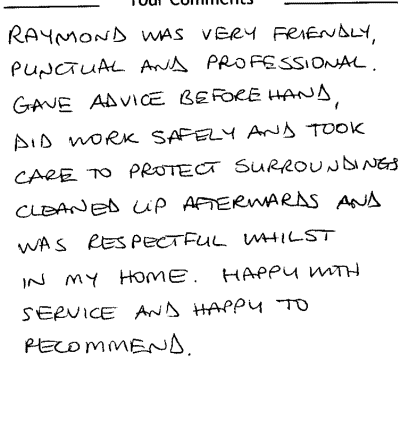 Your Comments
RAYMOND WAS VERY FRIENDLY,
PUNCTUAL AND PROFESSIONAL.
GAVE ADVICE BEFORE HAND,
DID WORK SAFELY AND TOOK
CARE TO PROTECT SURROUNDINGS
CLEANED UP AFTERWARDS AND
WAS RESPECTFUL WHILST
IN MY HOME. HAPPY WITH
SERVICE AND HAPPY TO
RECOMMEND.